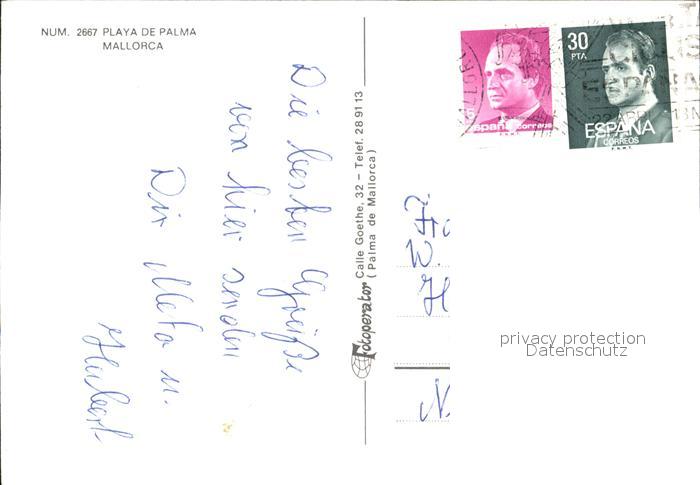 NUM. 2667 PLAYA DE PALMA
MALLORCA
Die besten Grüße
von hier senden
Dir Meta u.
Hubert
Fotoperator Calle Goethe, 32 – Telef. 28 91 13
(Palma de Mallorca)
españa correos
30
PTA
ESPAÑA
CORREOS
W.
N.
privacy protection
Datenschutz